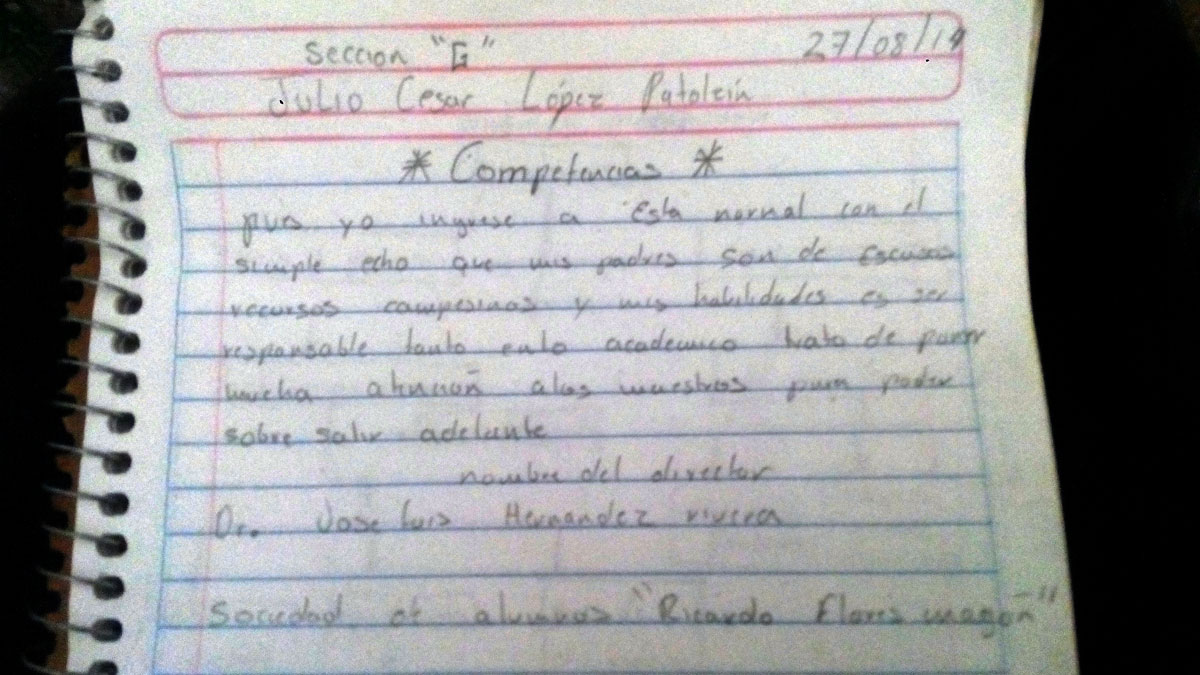 Seccion "G" 27/08/14
Julio Cesar López Patolzin
* Competencias *
pues yo ingrese a Esta normal con el
simple echo que mis padres son de Escasos
recursos campesinos y mis habilidades es ser
responsable tanto enlo academico trato de poner
mucha atencion alos maestros para poder
sobre salir adelante
nombre del director
Dr. Jose Luis Hernandez rivera
Sociedad de alumnos "Ricardo Flores magon"